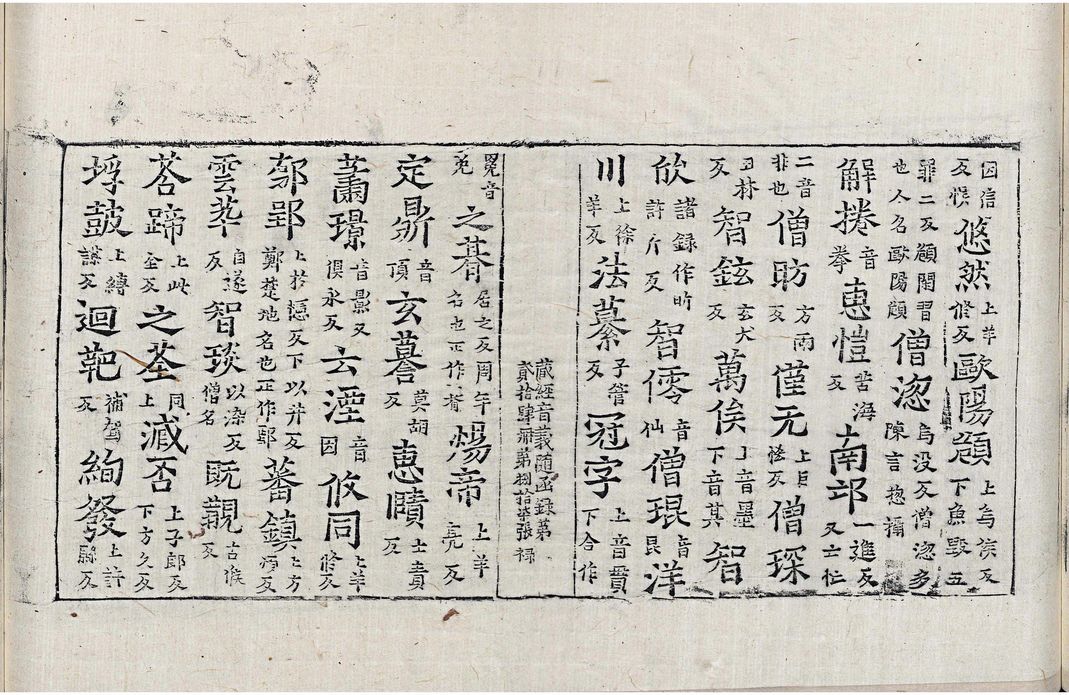 因信反悮悠然上羊修反歐陽頠上烏侯反下魚毀五
罪二反頠閑習也人名歐陽頠僧㴾烏没反僧㴾多陳言揔攝
解捲音拳惠愷苦海反南邔一進反又亡忙
二音非也僧昉方雨反僅无上巨僧琛
丑林反智鉉玄犬反萬俟上音墨下音其智
欣諸録作昕許斤反智儒音仙僧琨音昆洋
川上徐羊反法纂子管反冠字上音貫下合作
藏經音義随函録第貳拾肆冊第捌拾柒張祿
冕音免之朞居之反周年名也正作朞煬帝上羊亮反
定鼎音頂玄謩莫胡反惠賾士責反
蕭璟音景又俱永反云湮音因攸同上羊修反
鄢郢上於憶反下以井反鄭楚地名也正作郢蕃鎮上方煩反
雲萃自遂反智琰以染反僧名既覯古候反
荅蹄上此全反之荃同上臧否上子郎反下方久反
埓鼓上縛謀反迴靶補駕反絢發上許縣反